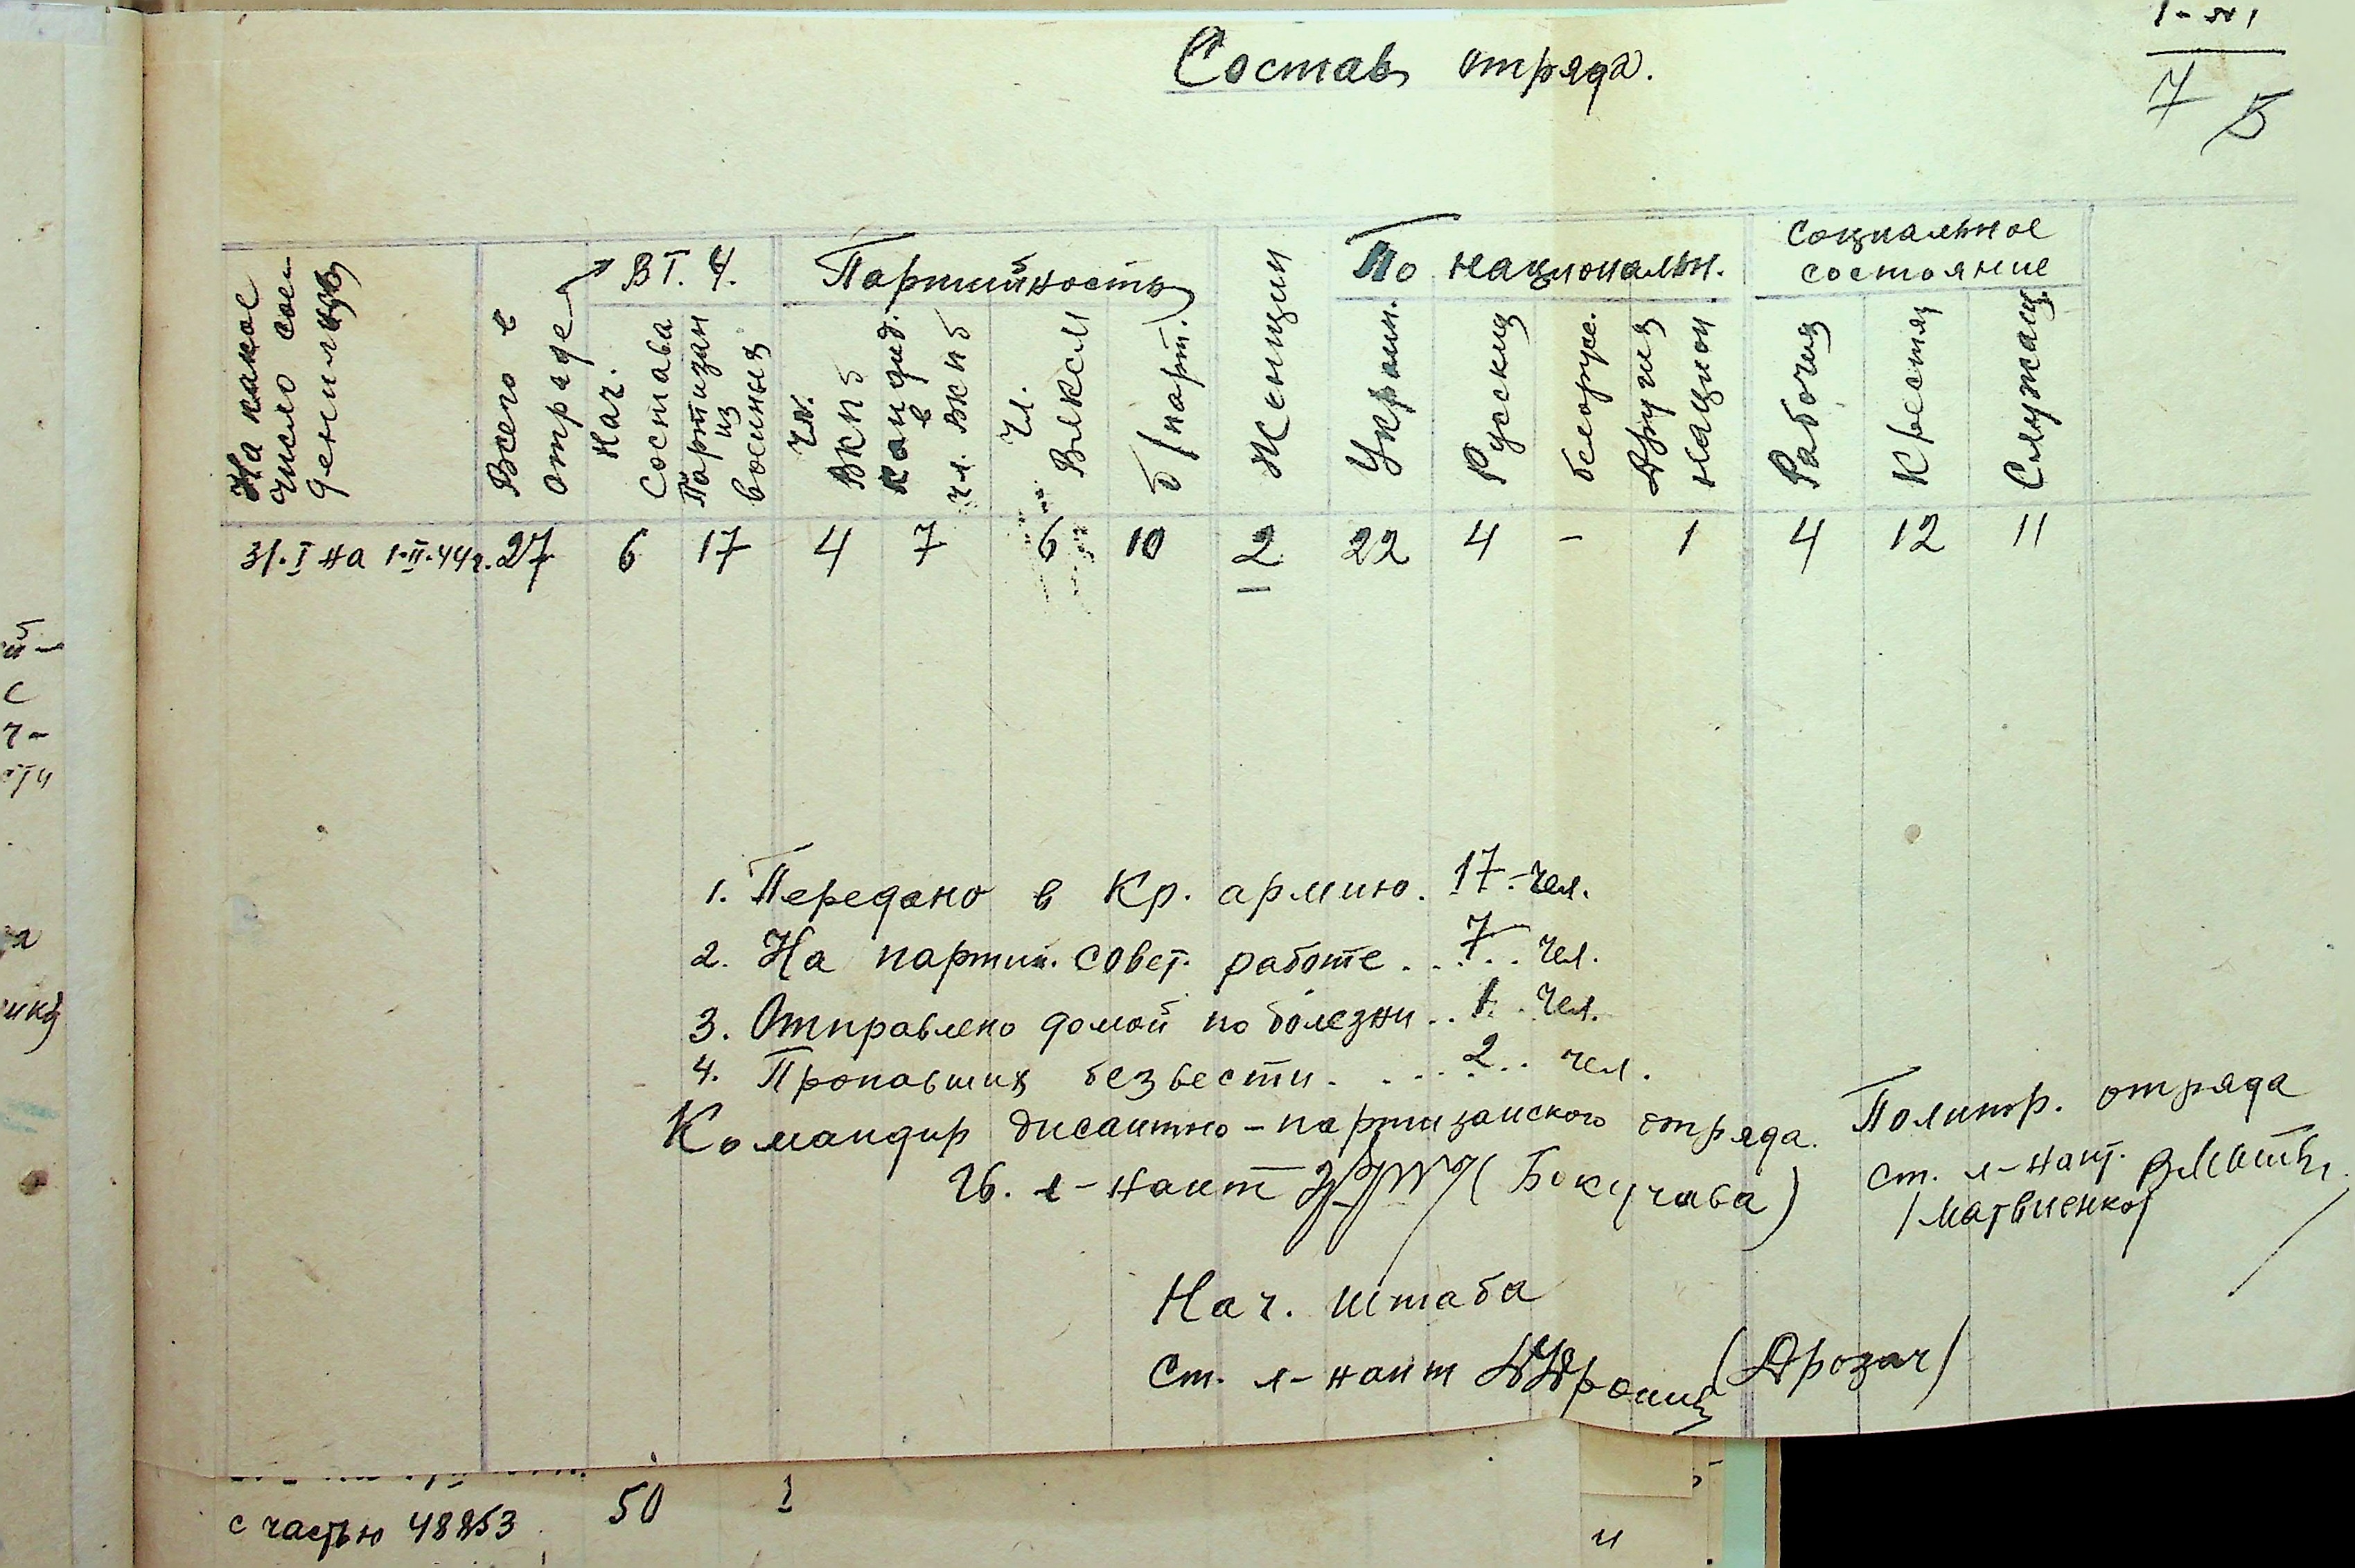 Состав отряда.
7 5
На какое
число соеди-
денился
Всего в
отряде
В Т. Ч.
Нач.
Состава
Партизан
из
военных
Партийность
Чл.
ВКПб
Кандид.
в
чл. ВКПб
Чл.
ВЛКСМ
б/парт.
Женщин
По национальн.
Украин.
Русских
белорусс.
Других
национ
социальное
состояние
Рабочих
Крестьян
Служащ.
31.I на 1-II-44г. 27 6 17 4 7 6 10 2 22 4 - 1 4 12 11
1. Передано в Кр. армию. 17.-чел.
2. На партийн. совет. работе . . 7 . . чел.
3. Отправлено домой по болезни . . 1 . чел.
4. Пропавших безвести . . . . 2 . . чел.
Командир дисантно-партизанского отряда.
Гв. л-нант (Бокучава)
Политр. отряда
ст. л-нант.
/Матвиенко/
Нач. штаба
Ст. л-нант (Дрозач)
с частью 48853 50 1